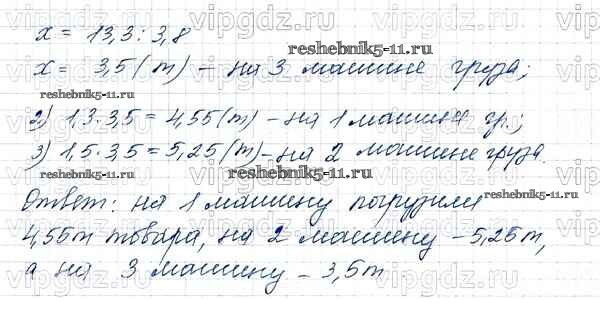 vipgdz.ru vipgdz.ru vipgdz.ru vipgdz.ru
x = 13,3 : 3,8
reshebnik5-11.ru
x = 3,5 (т) – на 3 машине груза;
reshebnik5-11.ru
2) 1,3 · 3,5 = 4,55 (т) – на 1 машине гр.;
3) 1,5 · 3,5 = 5,25 (т) – на 2 машине груза.
reshebnik5-11.ru
Ответ: на 1 машину погрузили
reshebnik5-11.ru
4,55т товара, на 2 машину – 5,25т,
а на 3 машину – 3,5т
vipgdz.ru vipgdz.ru vipgdz.ru vipgdz.ru